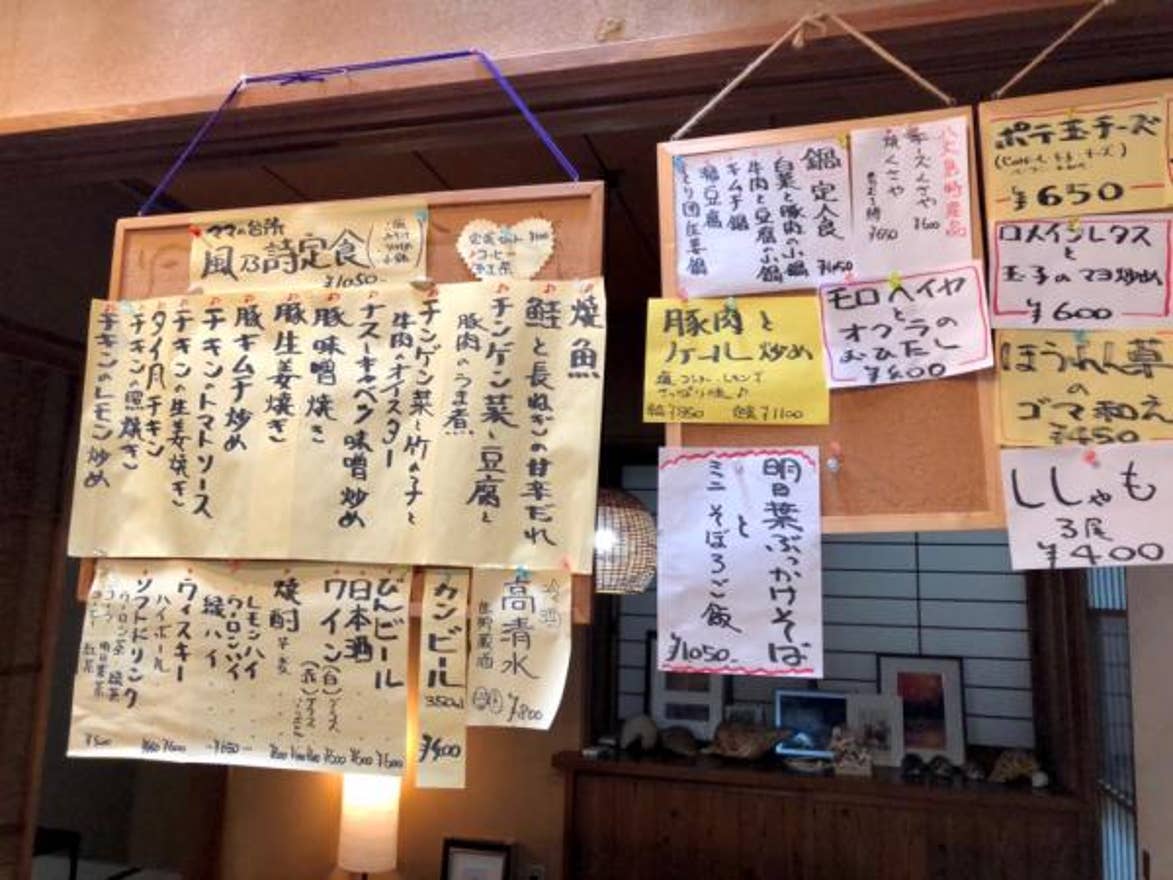 ママの台所
風乃詩定食
¥1050-
定食セット ¥100
コーヒー
紅茶
焼魚
鮭と長ねぎの甘辛だれ
チンゲン菜と豆腐と
豚肉のうま煮
チンゲン菜と竹の子と
牛肉のオイスター
ナスとキャベツ味噌炒め
豚味噌焼き
豚生姜焼き
豚キムチ炒め
チキンのトマトソース
チキンの生姜焼き
タイ風チキン
チキンの照焼き
チキンのレモン炒め
高清水
¥800
カンビール
350ml
¥400
びんビール
日本酒
ワイン(白)グラス
(赤)グラス
焼酎 芋 麦
レモンハイ
ウーロンハイ
緑ハイ
ウィスキー
ハイボール
ソフトドリンク
ウーロン茶 緑茶
コーラ 明日葉茶
コーヒー 紅茶
鍋定食
白菜と豚肉の小鍋
牛肉と豆腐の小鍋
キムチ鍋
¥1050
八丈島特産品
チーズくさや
¥600
焼くさや
¥650
豚肉と
ケール炒め
単品¥850 定食¥1100
モロヘイヤ
と
オクラの
おひたし
明日葉ぶっかけそば
と
ミニそぼろご飯
¥1050-
ポテ玉チーズ
¥650
ロメインレタス
と
玉子のマヨ炒め
¥600
ほうれん草
の
ゴマ和え
¥450
ししゃも
3尾
¥400